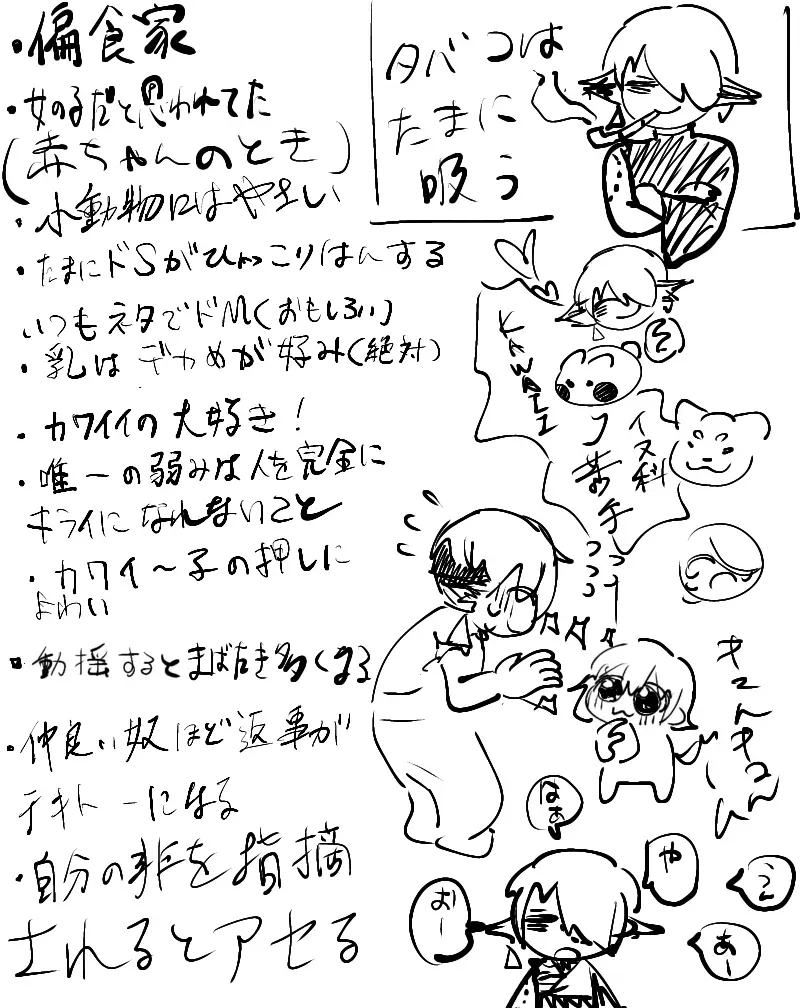 ・偏食家
・女の子だと思われてた
(赤ちゃんのとき)
・小動物にはやさしい
・たまにドSがひょっこりはんする
いつもネタでドM(おもしろい)
・乳はデカめが好み(絶対)
・カワイイの大好き!
・唯一の弱みは人を完全に
キライになれないこと
・カワイ〜子の押しに
よわい
・動揺するとまばたき多くなる
・仲良い奴ほど返事が
テキトーになる
・自分の非を指摘
されるとアセる
タバコは
たまに
吸う
KAWAII
イヌ科
苦手
っっっ
キュンキュン
なぁ
や
おー
あー